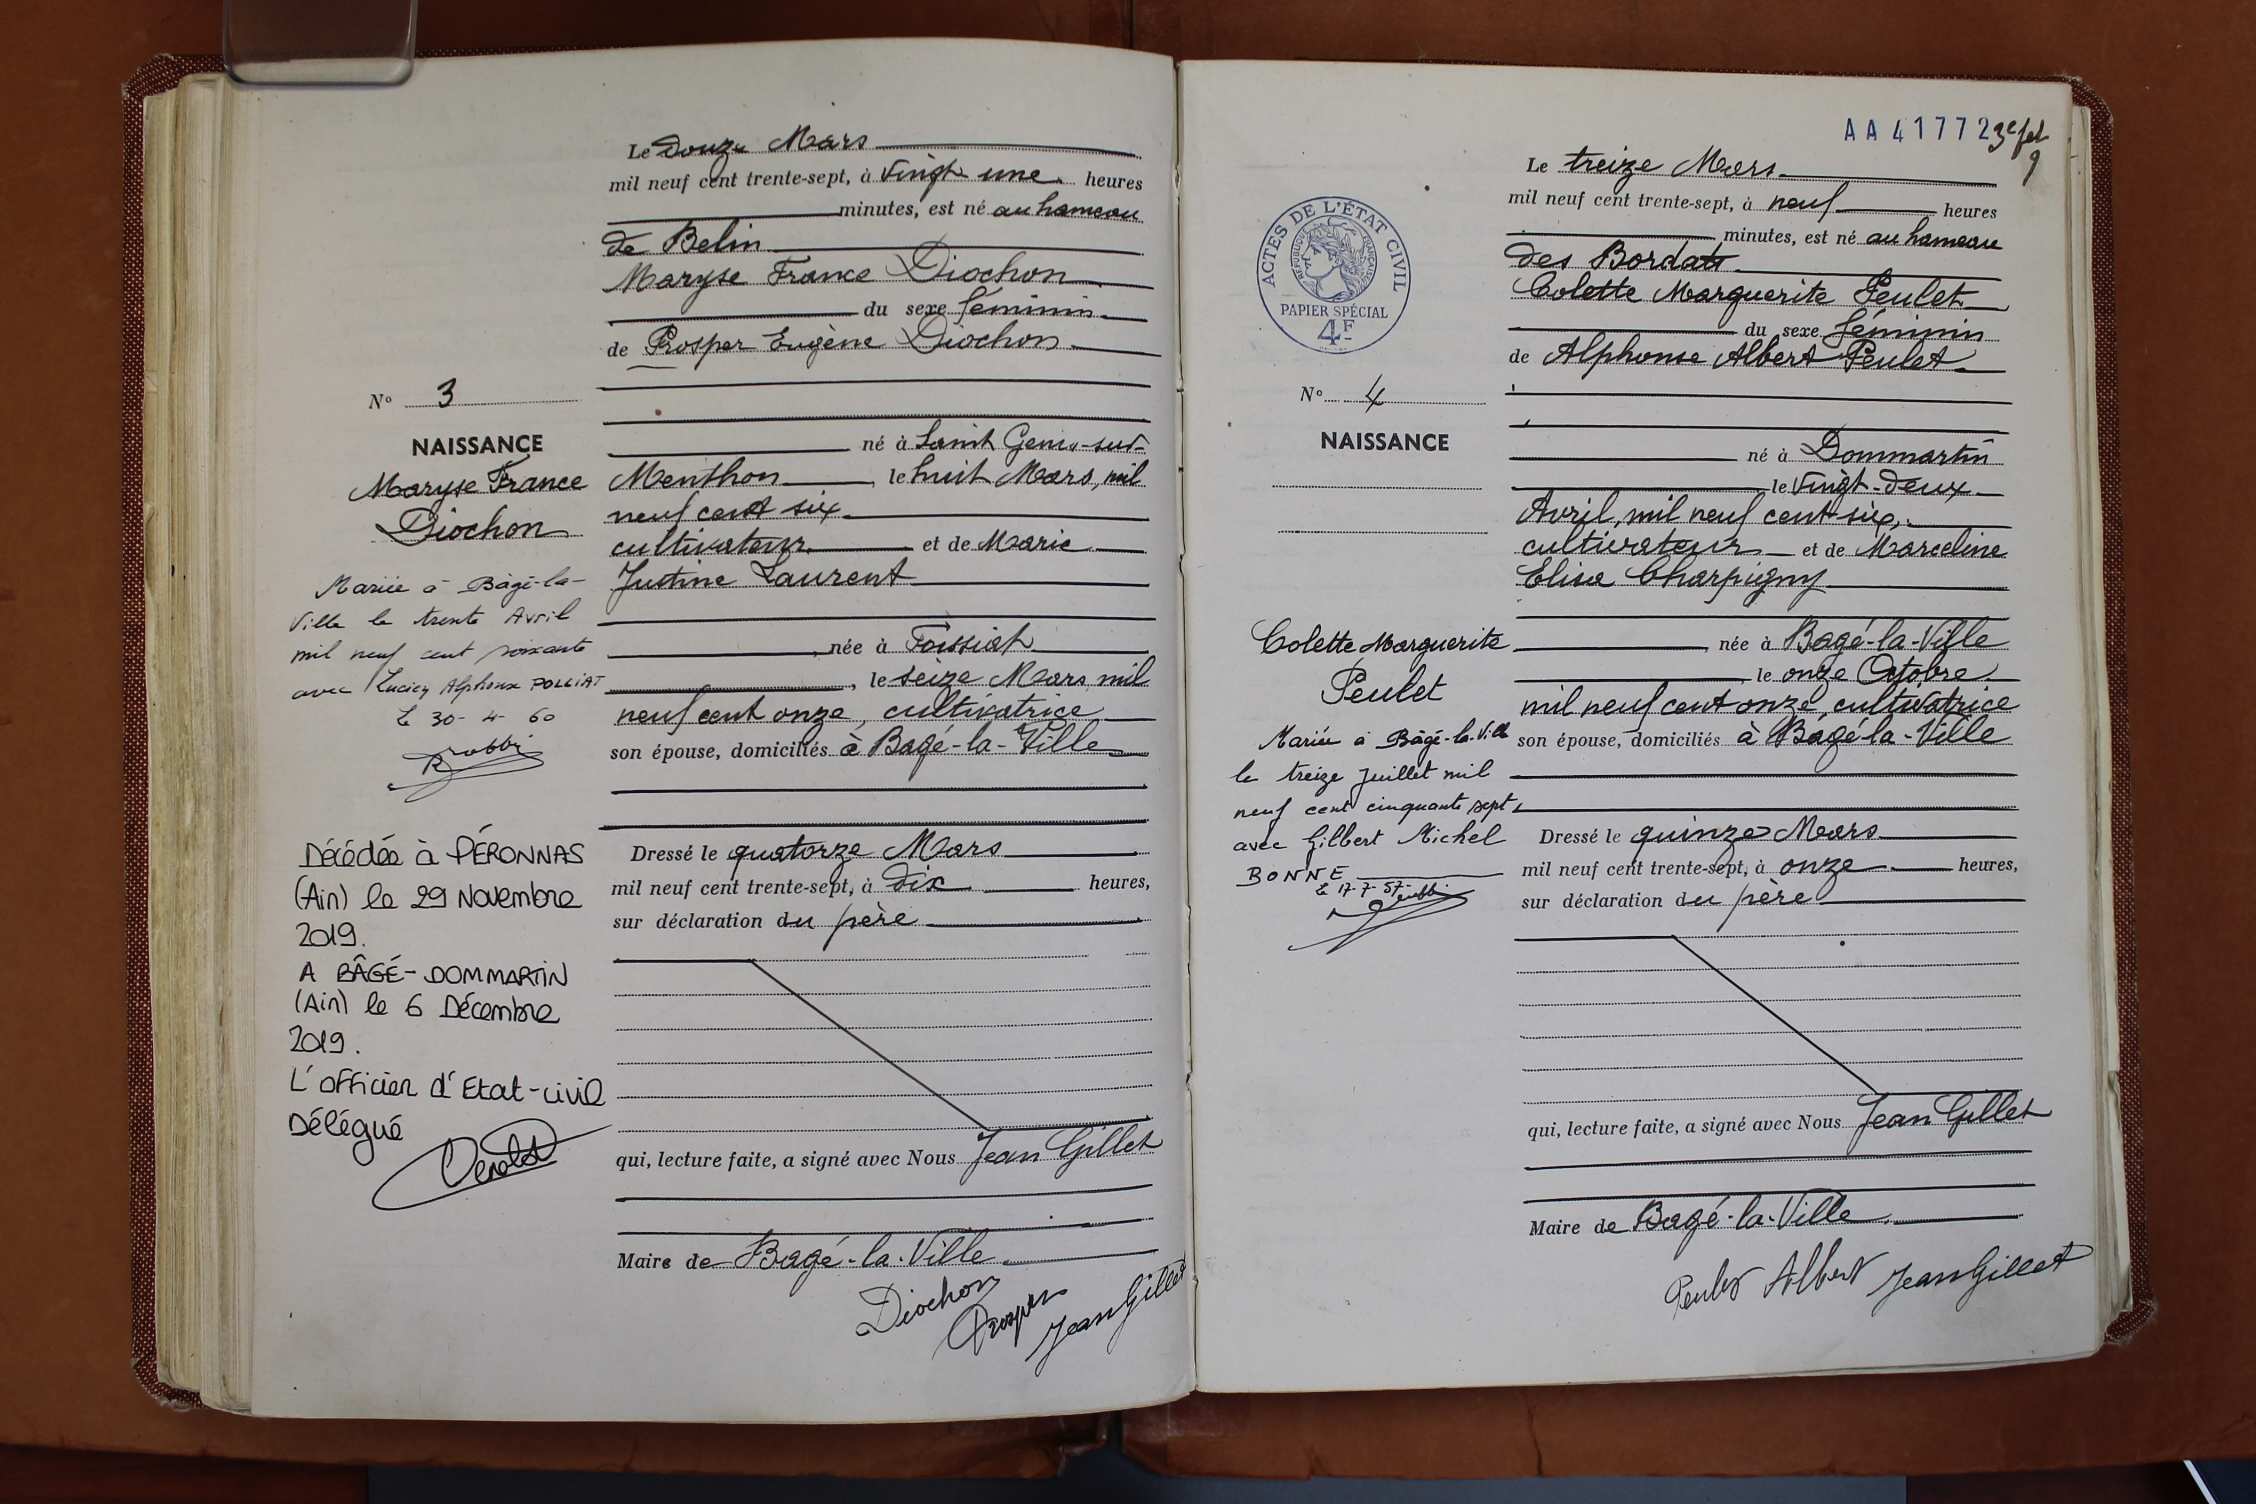 Le Douze Mars
mil neuf cent trente-sept, à vingt une heures
minutes, est né au hameau
de Belin
Maryse France Diochon
du sexe féminin
de Prosper Eugène Diochon
N° 3
NAISSANCE
Maryse France
Diochon
né à Saint Genis-sur-
Menthon, le huit Mars, mil
neuf cent six
cultivateur et de Marie
Justine Laurent
née à Foissiat
, le seize Mars mil
neuf cent onze, cultivatrice
son épouse, domiciliés à Bagé-la-Ville
Mariée à Bâgé-la-
Ville le trente Avril
mil neuf cent soixante
avec Lucien Alphonse POLLIAT
le 30-4-60
Décédée à PÉRONNAS
(Ain) le 29 Novembre
2019.
A BÂGÉ-DOMMARTIN
(Ain) le 6 Décembre
2019.
L'officier d'Etat-civil
Délégué
Dressé le quatorze Mars
mil neuf cent trente-sept, à dix heures,
sur déclaration du père
qui, lecture faite, a signé avec Nous Jean Gillet
Maire de Bagé-la-Ville
Diochon
Prosper
Jean Gillet
AA 41772 3e fet
9
Le treize Mars
mil neuf cent trente-sept, à neuf heures
minutes, est né au hameau
des Bordats
Colette Marguerite Peulet
du sexe féminin
de Alphonse Albert Peulet
ACTES DE L'ÉTAT CIVIL
RÉPUBLIQUE FRANÇAISE
PAPIER SPÉCIAL
4F
N° 4
NAISSANCE
né à Dommartin
le vingt-deux
Avril, mil neuf cent six,
cultivateur et de Marceline
Elisa Charpigny
née à Bagé-la-Ville
, le onze Octobre
mil neuf cent onze, cultivatrice
son épouse, domiciliés à Bagé-la-Ville
Colette Marguerite
Peulet
Mariée à Bâgé-la-Ville
le treize Juillet mil
neuf cent cinquante sept,
avec Gilbert Michel
BONNE
le 17-7-57-
Dressé le quinze Mars
mil neuf cent trente-sept, à onze heures,
sur déclaration du père
qui, lecture faite, a signé avec Nous Jean Gillet
Maire de Bagé-la-Ville
Peulet Albert Jean Gillet